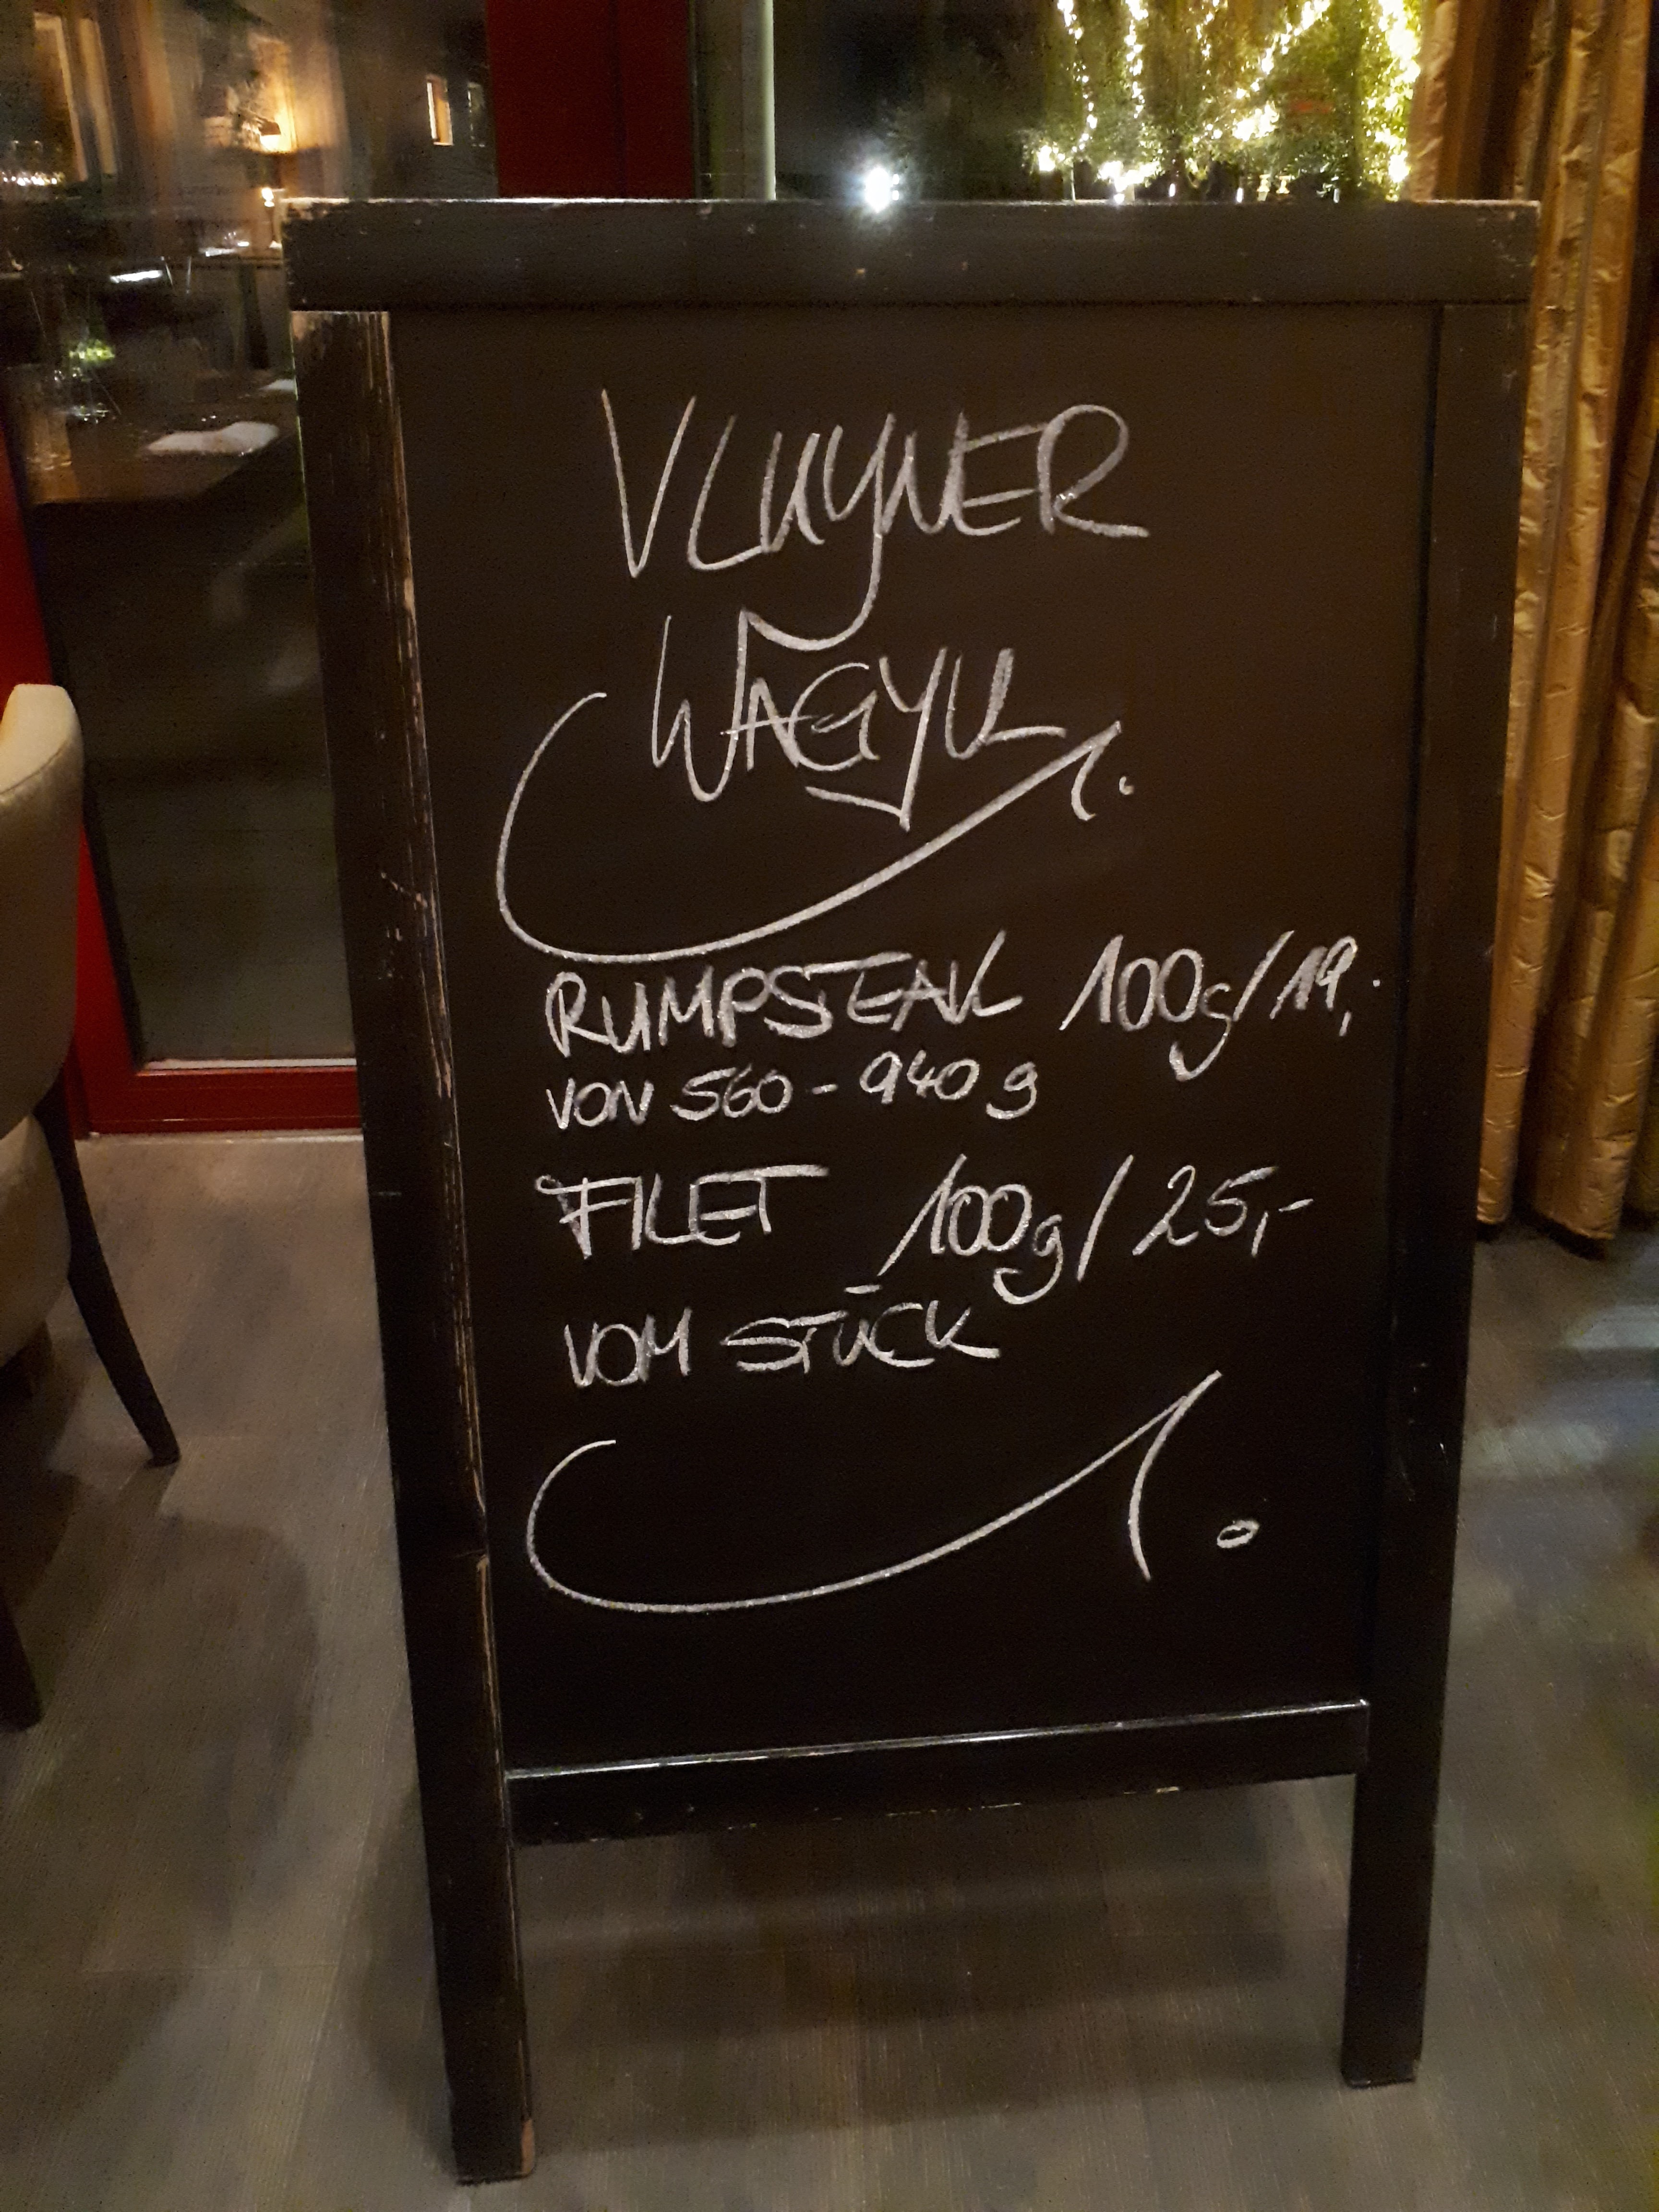 VLUYNER
WAGYU
RUMPSTEAK 100g/19,-
VON 560-940g
FILET 100g/25,-
VOM STÜCK